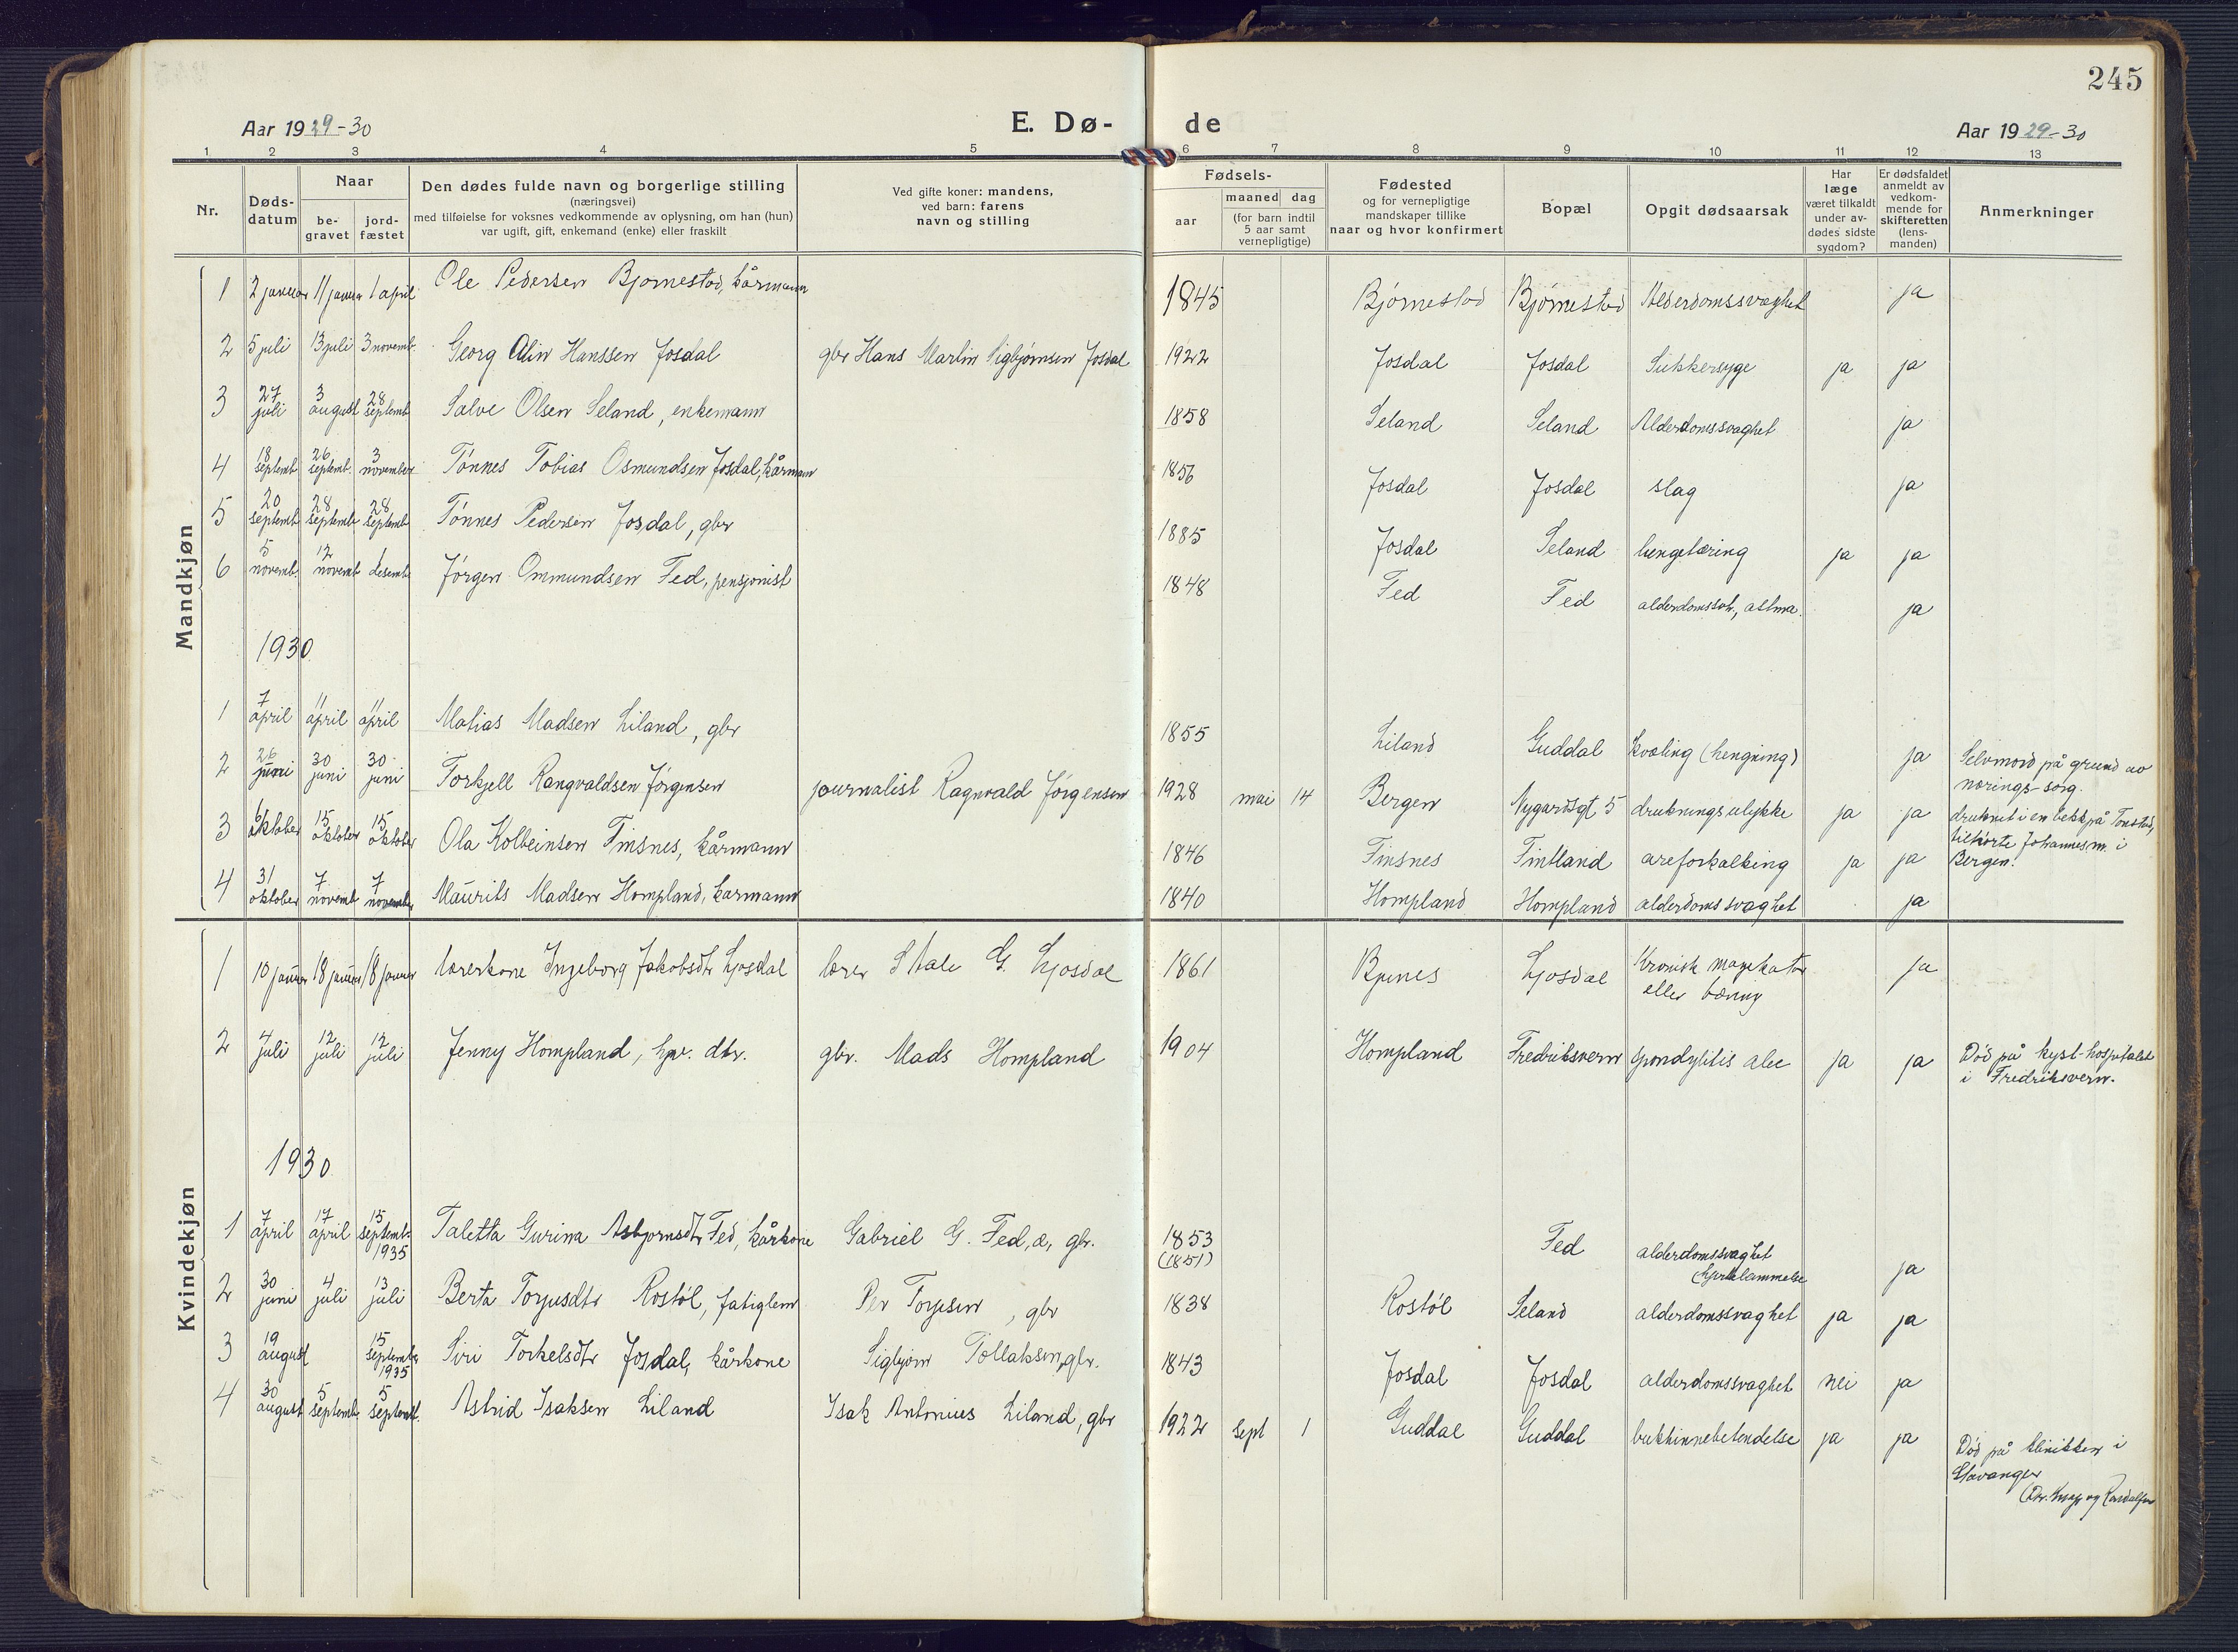 245
Aar 1929-30
E. Dø-
de
Aar 1929-30
1 2 3 4 5 6 7 8 9 10 11 12 13
Nr.
Døds-
datum
Naar
be-
gravet
jord-
fæstet
Den dødes fulde navn og borgerlige stilling
(næringsvei)
med tilføielse for voksnes vedkommende av oplysning, om han (hun)
var ugift, gift, enkemand (enke) eller fraskilt
Ved gifte koner: mandens,
ved barn: farens
navn og stilling
Fødsels-
aar
maaned dag
(for barn indtil
5 aar samt
vernepligtige)
Fødested
og for vernepligtige
mandskaper tillike
naar og hvor konfirmert
Bopæl
Opgit dødsaarsak
Har
læge
været tilkaldt
under av-
dødes sidste
sygdom?
Er dødsfaldet
anmeldt av
vedkom-
mende for
skifteretten
(lens-
manden)
Anmerkninger
Mandkjøn
1 2 januar 11 januar 1 april Ole Pedersen Bjørnestad, kårmann 1845 Bjørnestad Bjørnestad Alderdomssvaghet ja
2 5 juli 13 juli 3 novemb. Georg Alin Hanssen Josdal gbr Hans Martin Sigbjørnsen Josdal 1922 Josdal Josdal Sukkersyge ja ja
3 27 juli 3 august 28 septemb Salve Olsen Seland, enkemann 1858 Seland Seland Alderdomssvaghet ja
4 18 septemb 26 septemb. 3 november Tønnes Tobias Osmundsen Josdal, kårmann 1856 Josdal Josdal slag ja
5 20 septemb 28 septemb 28 septemb Tønnes Pedersen Josdal, gbr 1885 Josdal Seland lungetæring ja ja
6 5 novemb. 12 novemb desemb Jørgen Ommundsen Fed, pensjonist 1848 Fed Fed alderdomssvh., astma. ja
1930
1 7 april 11 april 11 april Matias Madsen Liland, gbr 1855 Liland Guddal kvæling (hengning) ja Selvmord på grund av
nærings-sorg.
2 26 juni 30 juni 30 juni Torkjell Rangvaldsen Jørgensen journalist Ragnvald Jørgensen 1928 mai 14 Bergen Nygardsgt 5 drukningsulykke ja ja druknet i en bekk på Tonstad,
tilhørte Johannesm. i
Bergen.
3 6 oktober 15 oktober 15 oktober Ola Kolbeinsen Finsnes, kårmann 1846 Finsnes Fintland areforkalking ja ja
4 31 oktober 7 novemb 7 november Maurits Madsen Hompland, karmann 1840 Hompland Hompland alderdomssvaghet ja
Kvindekjøn
1 10 januar 18 januar 18 januar lærerkone Ingeborg Jakobsdtr Ljosdal lærer Ståle G. Ljosdal 1861 Ljosdal Kronisk magekatar
eller tæring ja
2 4 juli 12 juli 12 juli Jenny Hompland, dtr. gbr. Mads Hompland 1904 Hompland Fredriksvern spondylitis ja ja Død på kyst-hospitalet
i Fredriksvern.
1930
1 7 april 17 april 15 septemb. 1935 Taletta Gurina Asbjørnsdtr Fed, kårkone Gabriel G. Fed, gbr. 1853
(1851) Fed alderdomssvaghet
(hjertelammelse ja
2 30 juni 4 juli 13 juli Berta Torjusdtr Rostøl, fatiglem Per Torjusen, gbr 1838 Rostøl Seland alderdomssvaghet ja ja
3 19 august 15 septembr 1935 Siri Torkelsdtr Josdal, kårkone Sigbjørn Tollaksen, gbr. 1843 Josdal Josdal alderdomssvaghet nei ja
4 30 august 5 septemb. 5 septemb. Astrid Isaksen Liland Isak Antonius Liland, gbr 1922 sept 1 Guddal Guddal bukhinnebetendelse ja ja Død på klinikken i
Stavanger